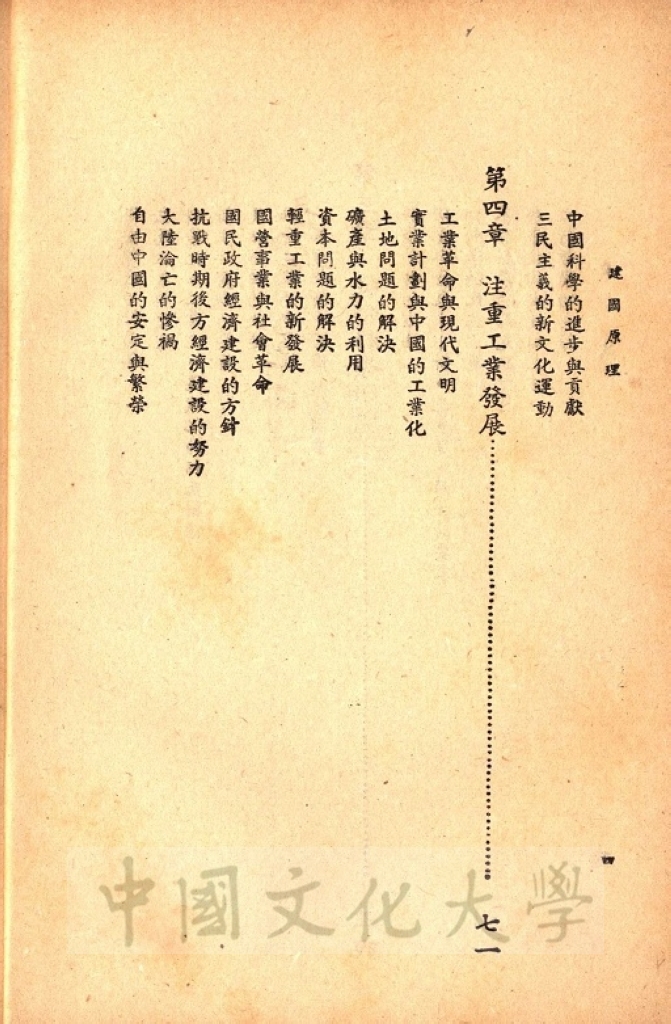 建國原理
四
中國科學的進步與貢獻
三民主義的新文化運動
第四章 注重工業發展……………………七一
工業革命與現代文明
實業計劃與中國的工業化
土地問題的解決
礦產與水力的利用
資本問題的解決
輕重工業的新發展
國營事業與社會革命
國民政府經濟建設的方針
抗戰時期後方經濟建設的努力
大陸淪亡的慘禍
自由中國的安定與繁榮
中國文化大學